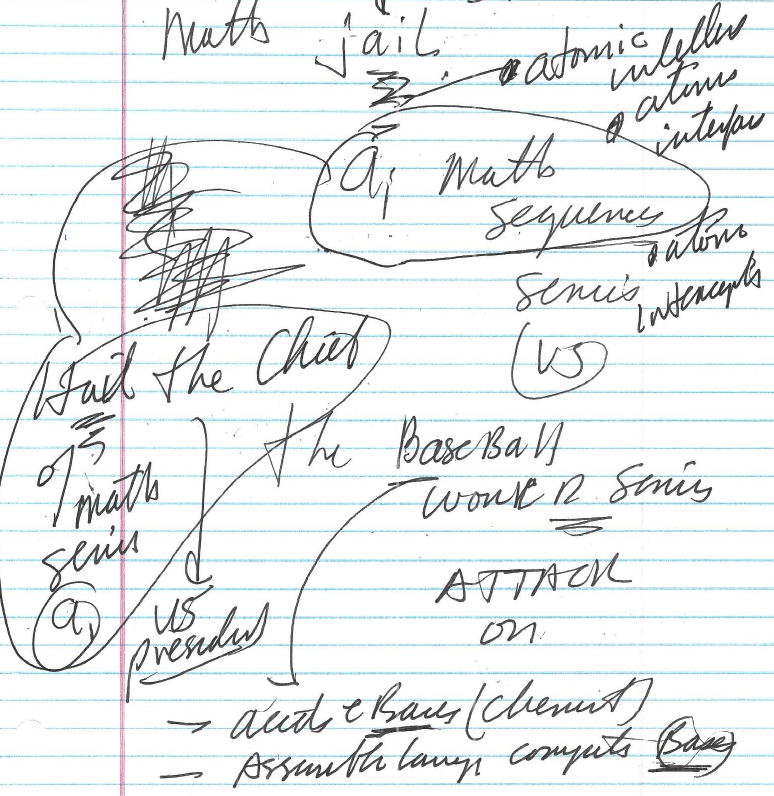 Math jail
• atomic
• atoms
a, Math
sequences
• atom
intercepts
series
(VS)
Hail the Chief
of
math
series
a,
US
president
the BaseBall
WORLD Series
ATTACK
on
— acids & Bases (Chemist)
— Assembly lang computs Bases